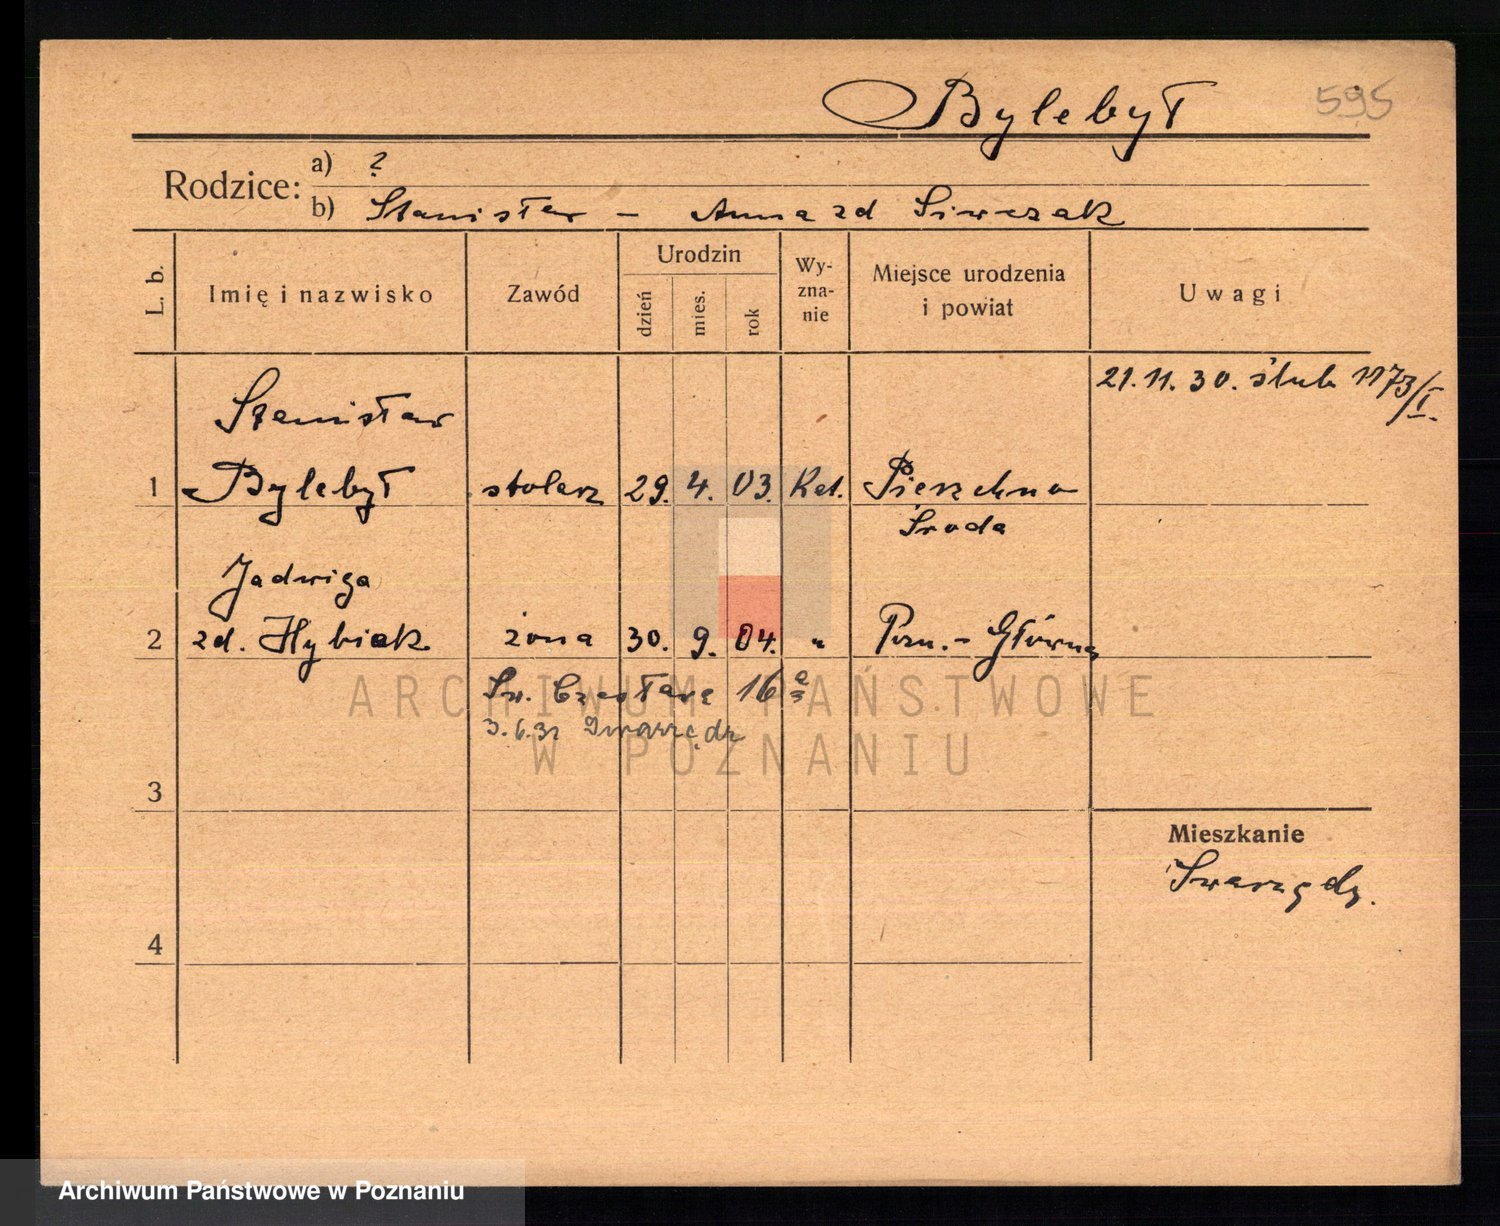 Bylebył 595
Rodzice: a) ?
b) Stanisław – Anna zd Siwczak
L. b. Imię i nazwisko Zawód Urodzin dzień mies. rok Wy-zna-nie Miejsce urodzenia i powiat Uwagi
21.11.30. ślub 1173/I.
Stanisław
1 Bylebył stolarz 29. 4. 03. Kat. Pierzchno
Środa
Jadwiga
2 zd. Hybiak żona 30. 9. 04. " Pozn. - Główna
Św. Czesława 16
3.6.32 Swarzędz
ARCHIWUM PAŃSTWOWE
W POZNANIU
3
Mieszkanie
Swarzędz.
4
Archiwum Państwowe w Poznaniu